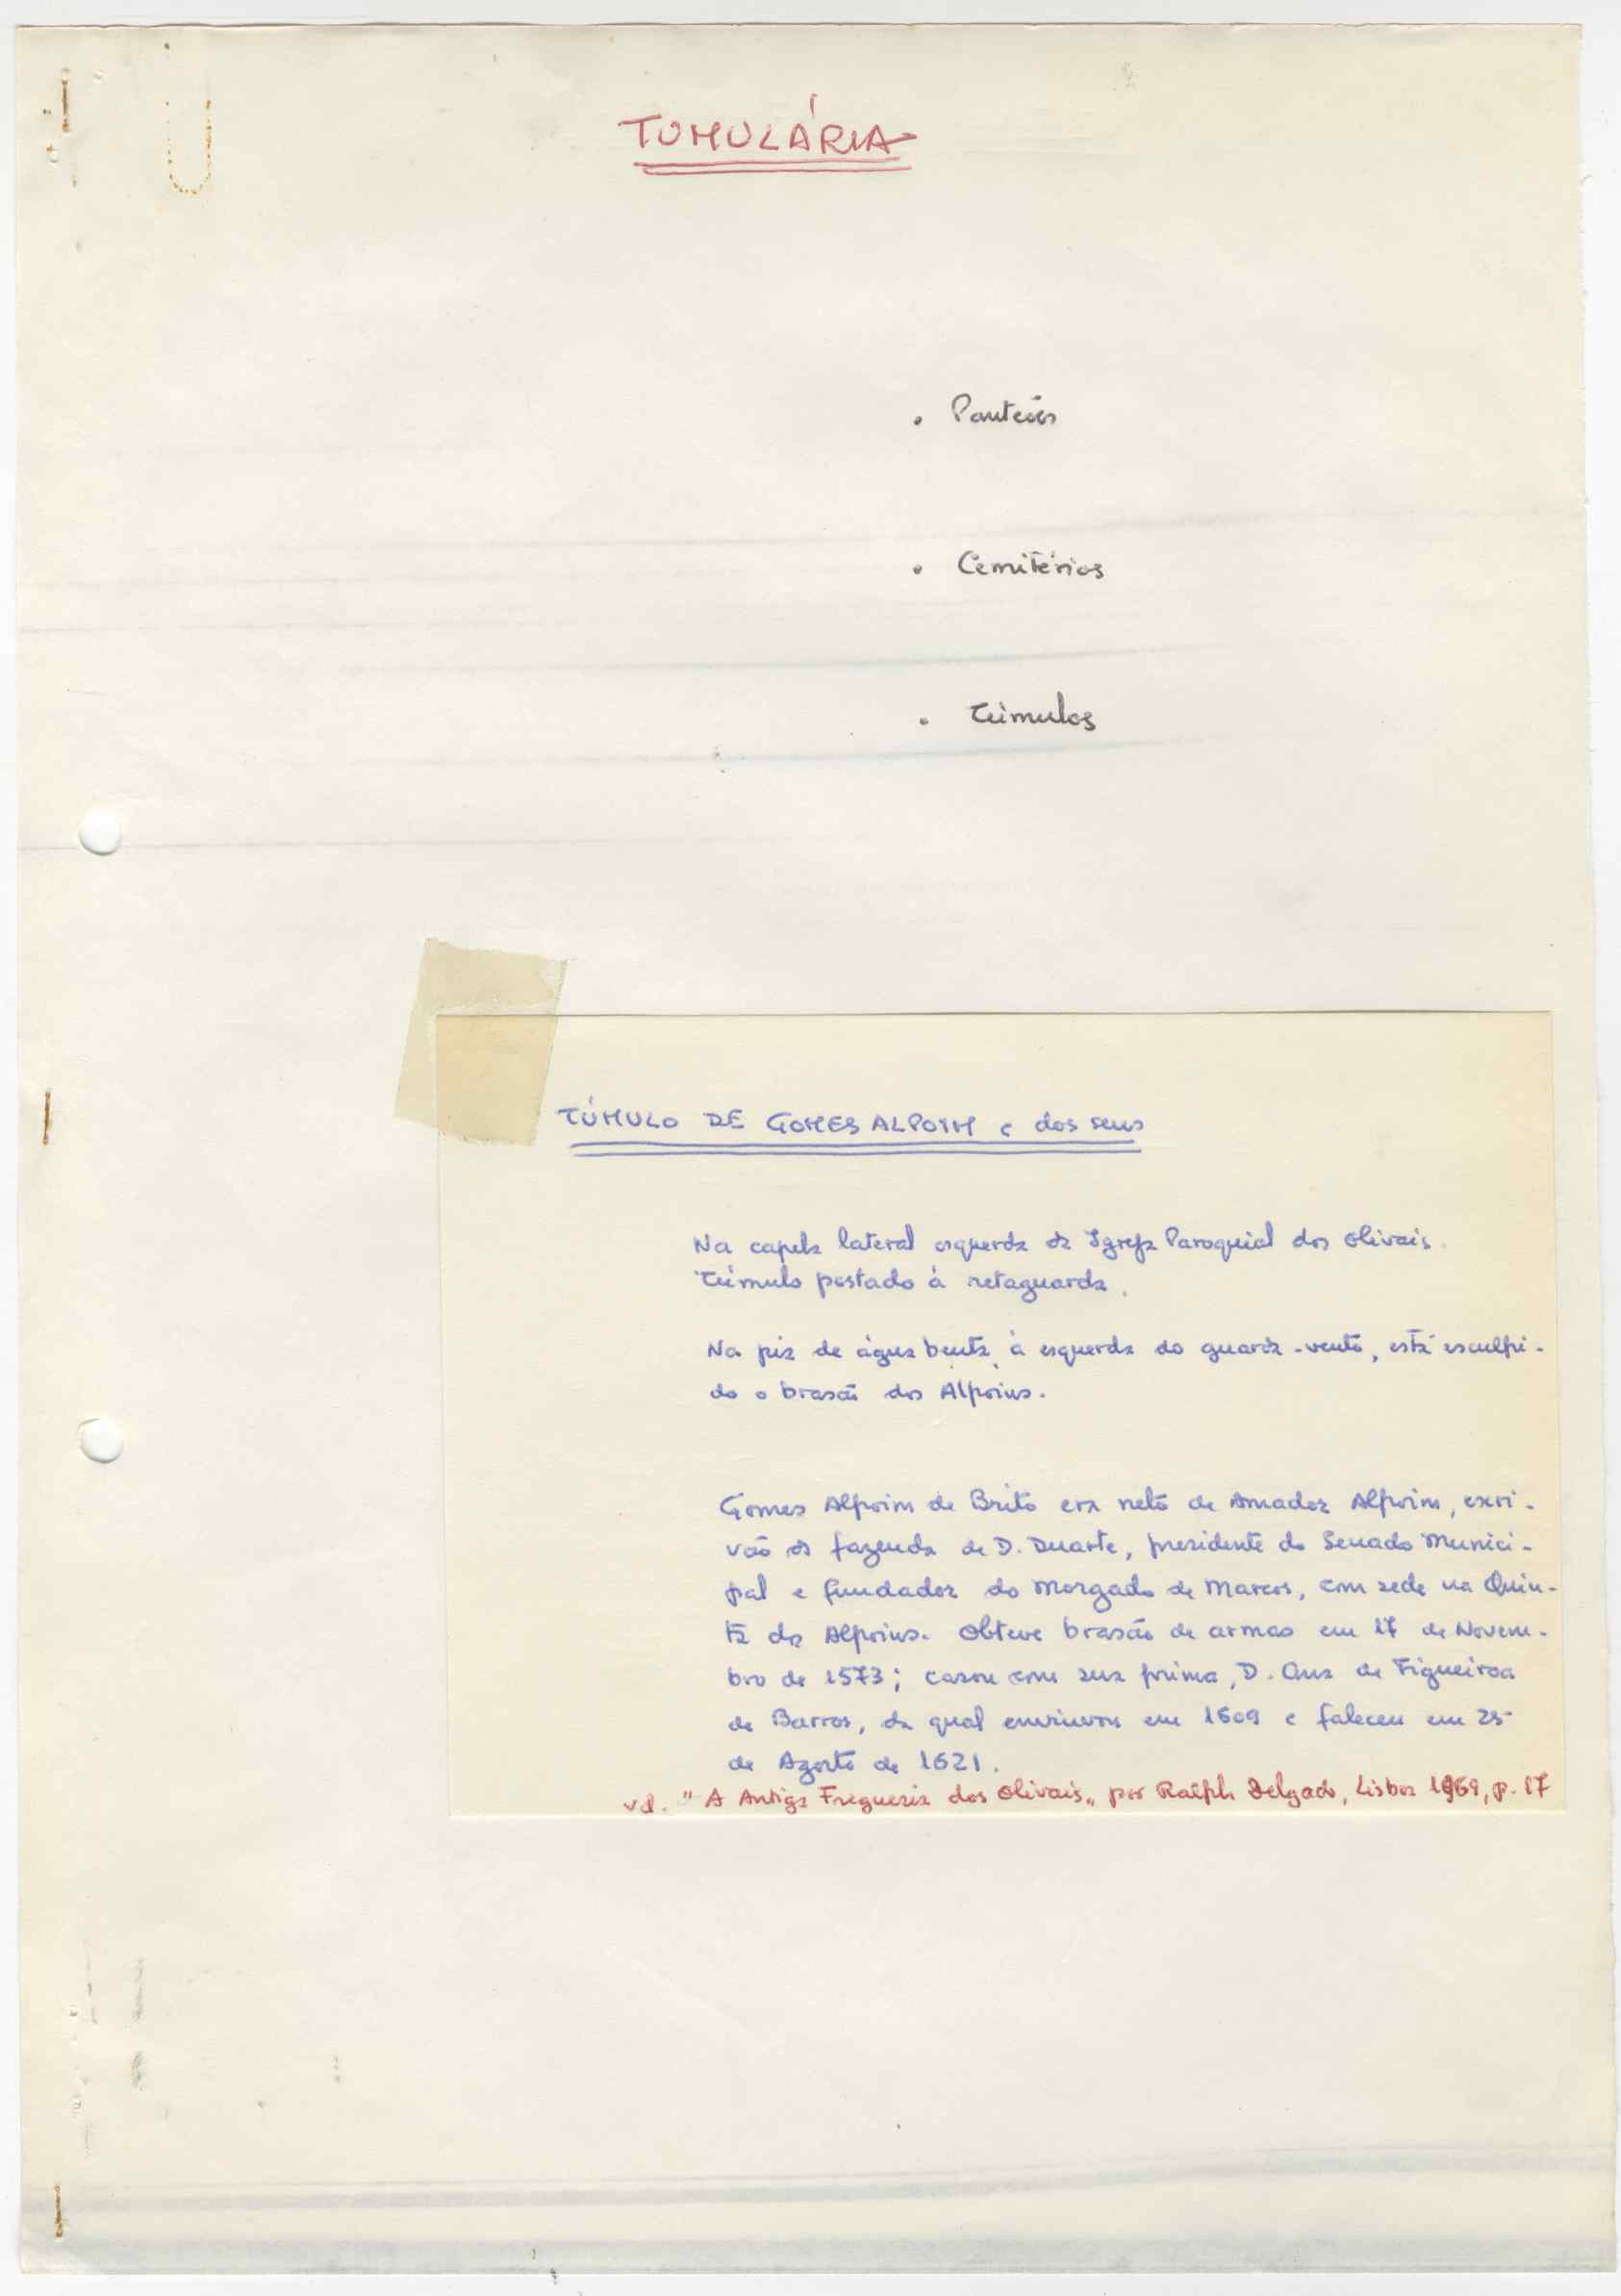 TUMULÁRIA
. Panteões
. Cemitérios
. Túmulos
TÚMULO DE GOMES ALPOIM e dos seus
Na capela lateral esquerda da Igreja Paroquial dos Olivais.
Túmulo postado à retaguarda.
Na pia de água benta, à esquerda do guarda-vento, está esculpi-
do o brasão dos Alpoins.
Gomes Alpoim de Brito era neto de Amador Alpoim, escri-
vão da fazenda de D. Duarte, presidente do Senado Munici-
pal e fundador do Morgado de Marcos, com sede na Quin-
ta dos Alpoins. Obteve brasão de armas em 17 de Novem-
bro de 1573; casou com sua prima, D. Ana de Figueiroa
de Barros, da qual enviuvou em 1609 e faleceu em 25
de Agosto de 1621.
vd. "A Antiga Freguesia dos Olivais" por Ralph Delgado, Lisboa 1969, p. 17